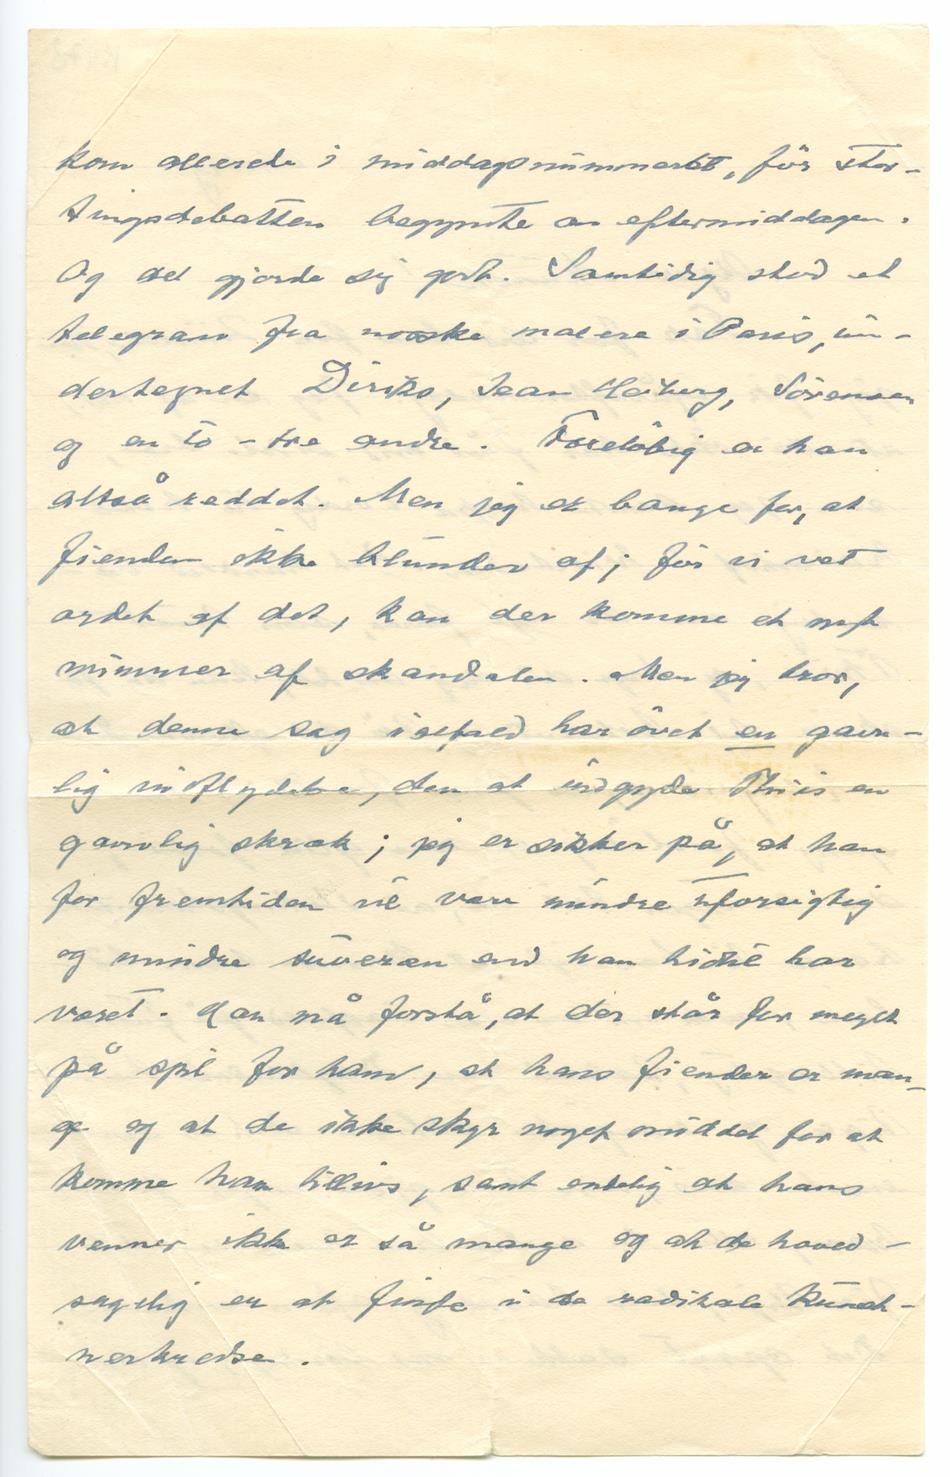 kom allerede i middagsnummeret, før stor-
tingsdebatten begynte om eftermiddagen.
Og det gjorde sig godt. Samtidig stod et
telegram fra norske malere i Paris, un-
dertegnet Diriks, Jean Heiberg, Sørensen
og en to-tre andre. Foreløbig er han
altså reddet. Men jeg er bange for, at
fienden ikke blunder af; før vi vet
ordet af det, kan der komme et nyt
nummer af skandalen. Men jeg tror,
at denne sag isefald har øvet en gavn-
lig indflydelse, den at indgyde Thiis en
gavnlig skræk; jeg er sikker på, at han
for fremtiden vil være mindre uforsigtig
og mindre suveræn end han hidtil har
været. Han må forstå, at der står for meget
på spil for ham, at hans fiender er man-
ge og at de ikke skyr noget middel for at
komme ham tillivs, samt endelig at hans
venner ikke er så mange og at de hoved-
sagelig er at finde i de radikale kunst-
nerkredse.